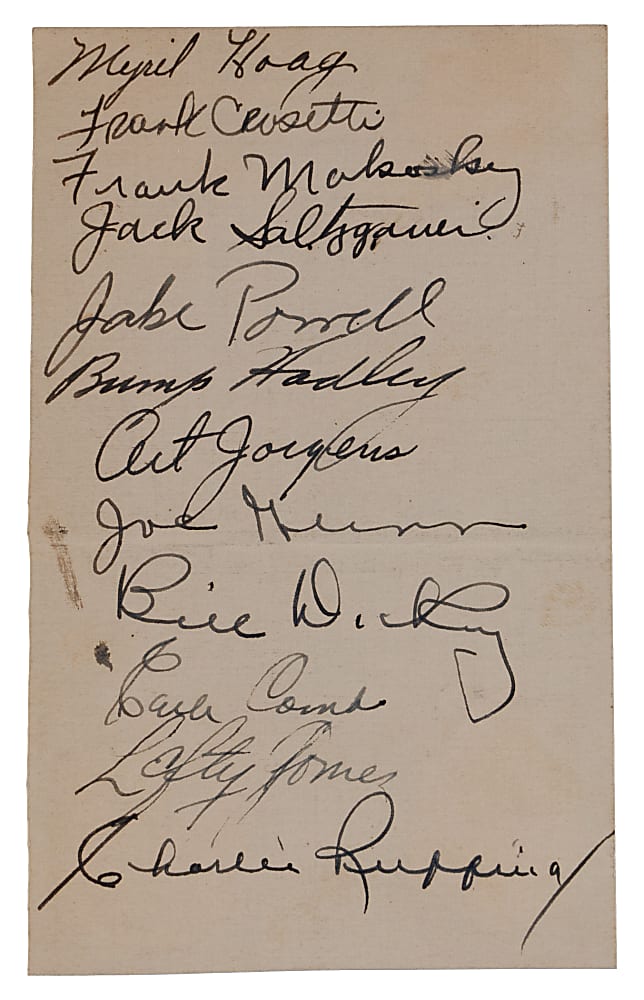 Myril Hoag
Frank Crosetti
Frank Makosky
Jack Saltzgaver
Jake Powell
Bump Hadley
Art Jorgens
Joe Glenn
Bill Dickey
Earle Combs
Lefty Gomez
Charlie Ruffing